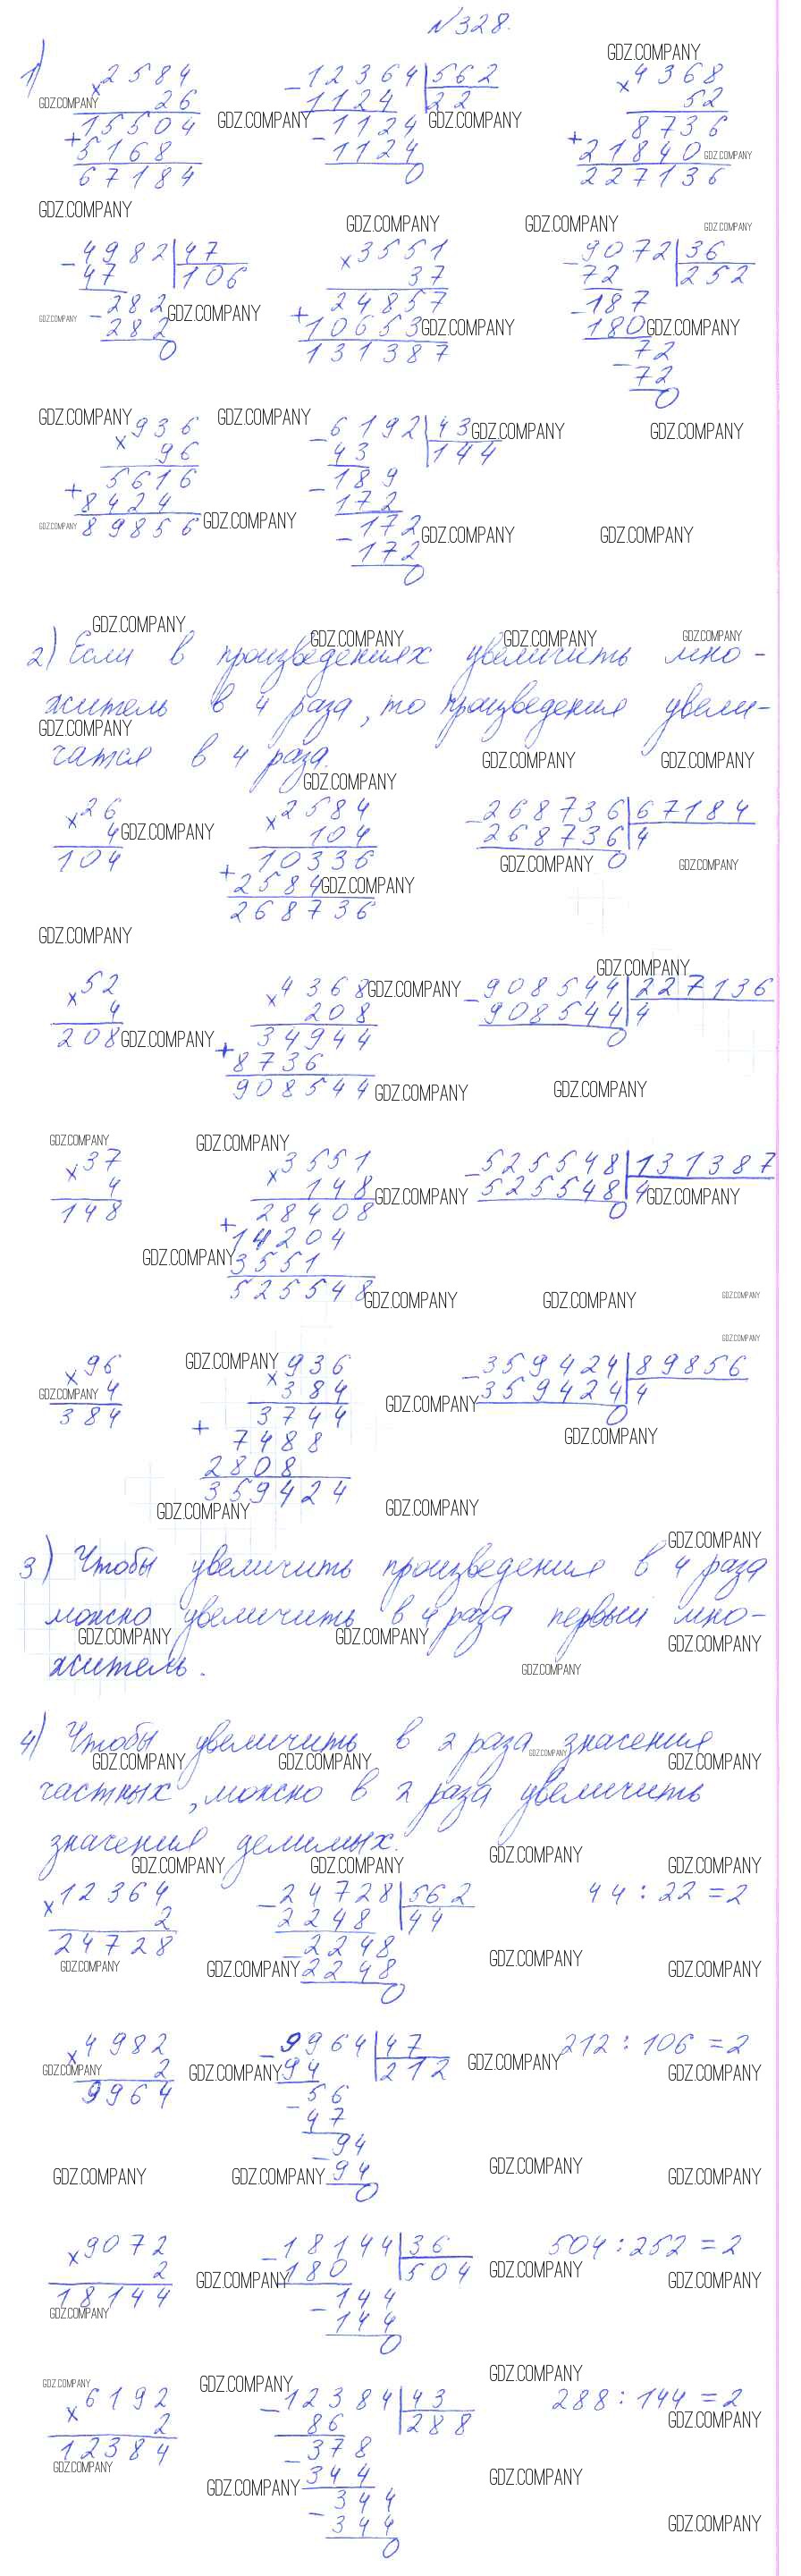 №328.
1) ×2584 −12364|562 ×4368
26 1124 22 52
15504 −1124 8736
+5168 1124 +21840
67184 0 227136
−4982|47 ×3551 −9072|36
47 106 37 72 252
−282 24857 −187
282 +10653 180
0 131387 −72
72
0
×936 −6192|43
96 43 144
5616 −189
+8424 172
89856 −172
172
0
2) Если в произведениях увеличить мно-
житель в 4 раза, то произведения увели-
чатся в 4 раза.
×26 ×2584 −268736|67184
4 104 268736 4
104 10336 0
+2584
268736
×52 ×4368 −908544|227136
4 208 908544 4
208 34944 0
+8736
908544
×37 ×3551 −525548|131387
4 148 525548 4
148 28408 0
+14204
3551
525548
×96 ×936 −359424|89856
4 384 359424 4
384 3744 0
+7488
2808
359424
3) Чтобы увеличить произведения в 4 раза
можно увеличить в 4 раза первый мно-
житель.
4) Чтобы увеличить в 2 раза значения
частных, можно в 2 раза увеличить
значения делимых.
×12364 −24728|562 44 : 22 = 2
2 2248 44
24728 −2248
2248
0
×4982 −9964|47 212 : 106 = 2
2 94 212
9964 −56
47
−94
94
0
×9072 −18144|36 504 : 252 = 2
2 180 504
18144 −144
144
0
×6192 −12384|43 288 : 144 = 2
2 86 288
12384 −378
344
−344
344
0
GDZ.COMPANY